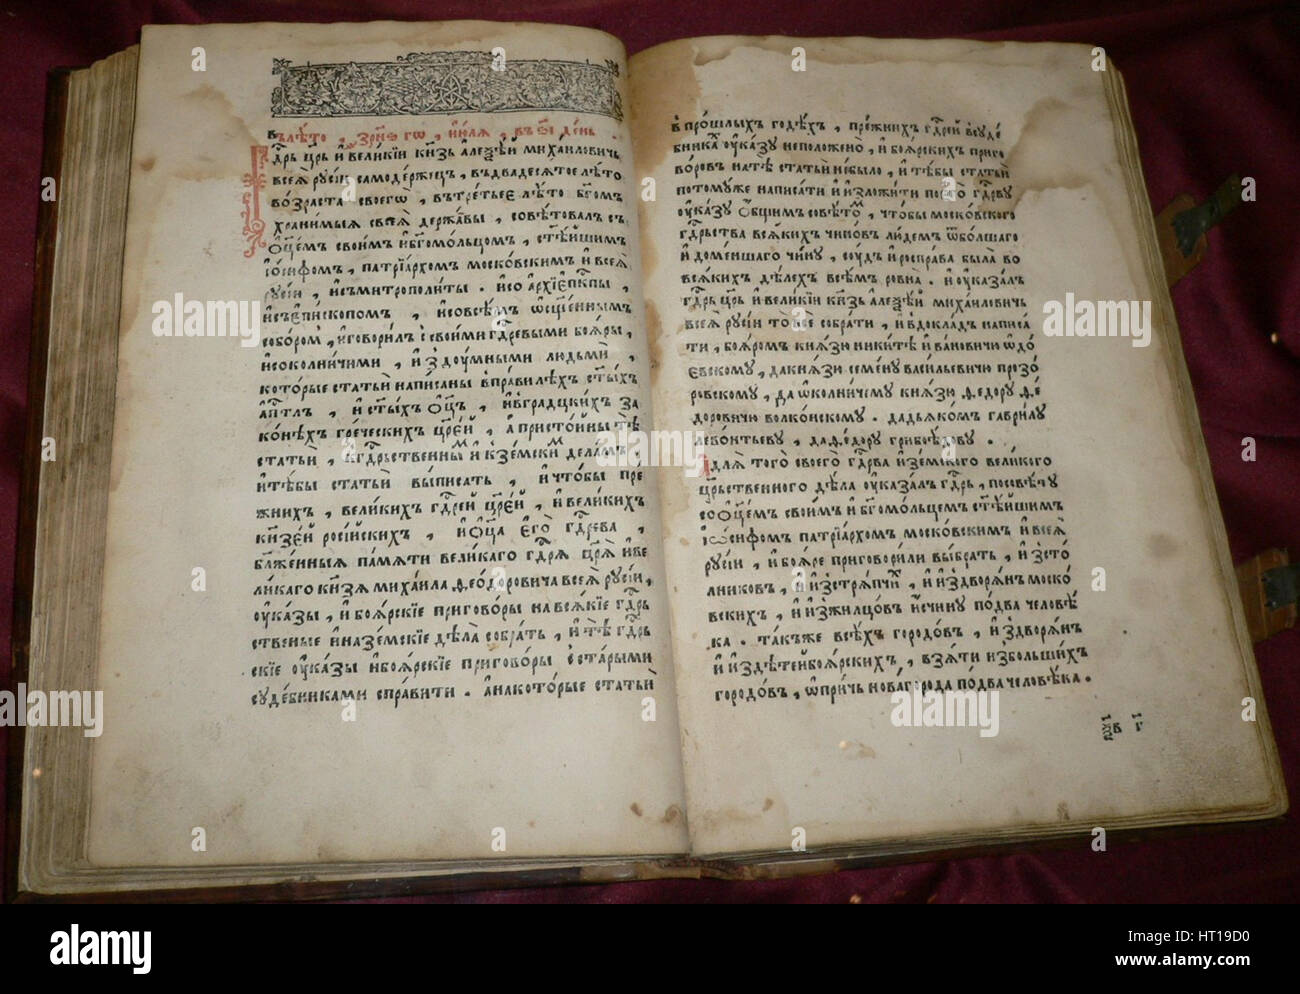 В лѣто ҂зрн҃ѕ го, і҆ю́лѧ, въ ѕ҃і де́нь.
Гдⷭ҇рь цр҃ь и҆ вели́кїи кнѧ́зь а҆леѯѣ́й михаи́ловичь,
всеѧ̀ рꙋсі́и самоде́ржецъ, въ двадесѧ́тое лѣ́то
во́зраста своегѡ̀, въ тре́тьее лѣ́то бг҃омъ
храни́мыѧ своеѧ̀ держа́вы, совѣ́товалъ съ
ѻ҆ц҃е́мъ свои́мъ и҆ бг҃омо́льцомъ, ст҃ѣ́йшимъ
і҆ѡ́сифомъ, патрїа́рхомъ моско́вскимъ и҆ всеѧ̀
рꙋсі́и, и҆ съ митрополи́ты. и҆ со а҆рхїепⷭ҇кпы,
и҆ съ е҆пи́скопомъ, и҆ со всѣ́мъ ѡ҆сщ҃е́ннымъ
собо́ромъ, и҆ говори́лъ с своими гдⷭ҇ревыми боѧ́ры,
и҆ с ѻ҆ко́лничими, и҆ з дꙋ́мными людьмѝ,
кото́рые статьѝ напи́саны в пра́вилѣхъ ст҃ы́хъ
а҆пⷭ҇тлъ, и҆ ст҃ы́хъ ѻ҆ц҃ъ, и҆ в гра́дцкихъ за
ко́нѣхъ гре́ческихъ цр҃е́й, а҆ присто́йны тѣ̀
статьѝ, к гдⷭ҇рьственнымъ и҆ к зе́мскимъ дѣла́мъ,
и҆ тѣ̀ бы статьѝ вы́писать, и҆ что́бы пре́
жнихъ, вели́кихъ гдⷭ҇ре́й цр҃е́й, и҆ вели́кихъ
кнѧ҃зе́й росі́йскихъ, и҆ ѻ҆ц҃а̀ е҆гѡ̀ гдⷭ҇рева,
бл҃же́нныѧ па́мѧти вели́каго гдⷭ҇рѧ цр҃ѧ̀ и҆ ве
ли́каго кн҃зѧ михаи́ла ѳео́доровича всеѧ̀ рꙋсі́и,
ᲂу҆ка́зы, и҆ боѧ́рскїе пригово́ры на всѧ́кїе гдⷭ҇рь
ственые и҆ на зе́мскїе дѣла̀ собра́ть, и҆ тѣ̀ гдⷭ҇рь
скїе ᲂу҆ка́зы и҆ боѧ́рскїе пригово́ры с ста́рыми
сꙋде́бниками спра́вити. а҆ на кото́рые статьѝ
в про́шлыхъ годѣ́хъ, пре́жнихъ гдⷭ҇ре́й в сꙋде́
бникахъ ᲂу҆ка́зꙋ не поло́жено, и҆ боѧ́рскихъ приго
во́ровъ на тѣ̀ статьѝ не бы́ло, и҆ тѣ̀ бы статьѝ
по томꙋ́ же написа́ти и҆ и҆зложи́ти по е҆го̀ гдⷭ҇рвꙋ
ᲂу҆ка́зꙋ ѻ҆́бщимъ совѣ́томъ, что́бы моско́вского
гдⷭ҇рьства всѧ́кихъ чино́въ лю́демъ ѿ бо́лшаго
и҆ до ме́ншаго чи́нꙋ, сꙋ́дъ и҆ роспра́ва была̀ во
всѧ́кихъ дѣ́лехъ всѣ́мъ ровна̀. и҆ ᲂу҆каза́лъ
гдⷭ҇рь цр҃ь и҆ вели́кїи кнѧ́зь а҆леѯѣ́й михаи́ловичь
всеѧ̀ рꙋсі́и то̀ всѐ собра́ти, и҆ в докла́дъ написа́
ти, боѧ́ромъ кнѧ́зю ники́тѣ и҆ва́новичю ѻ҆до́
евскомꙋ, да кнѧ́зю семе́нꙋ васи́льевичю прозо́
ровскомꙋ, да ѻ҆ко́лничемꙋ кнѧ́зю ѳе́дорꙋ ѳе́
доровичю волко́нскомꙋ. да дьѧ́комъ гаври́лꙋ
лево́нтьевꙋ, да ѳе́дорꙋ грибоѣ́довꙋ.
А҆ длѧ̀ того̀ своего̀ гдⷭ҇рва и҆ зе́мского вели́кого
црⷭ҇твенного дѣ́ла ᲂу҆каза́лъ гдⷭ҇рь, по совѣ́тꙋ
со ѻ҆ц҃е́мъ свои́мъ и҆ бг҃омо́льцемъ ст҃ѣ́йшимъ
і҆ѡ́сифомъ патрїа́рхомъ моско́вскимъ и҆ всеѧ̀
рꙋсі́и, и҆ боѧ́ре приговори́ли вы́брать, и҆з сто́
лниковъ, и҆ и҆з стрѧ́пчихъ, и҆ и҆з дворѧ́нъ моско́
вскихъ, и҆ и҆з жилцо́въ и҆с чи́нꙋ по́ два человѣ́
ка. та́къже всѣ́хъ городо́въ, и҆з дворѧ́нъ
и҆ и҆з дѣте́й боѧ́рскихъ, взѧ́ти из больши́хъ
городо́въ, ѻ҆при́чь новаго́рода по́ два человѣ́ка.
а
alamy
Image ID: HT19D0
www.alamy.com